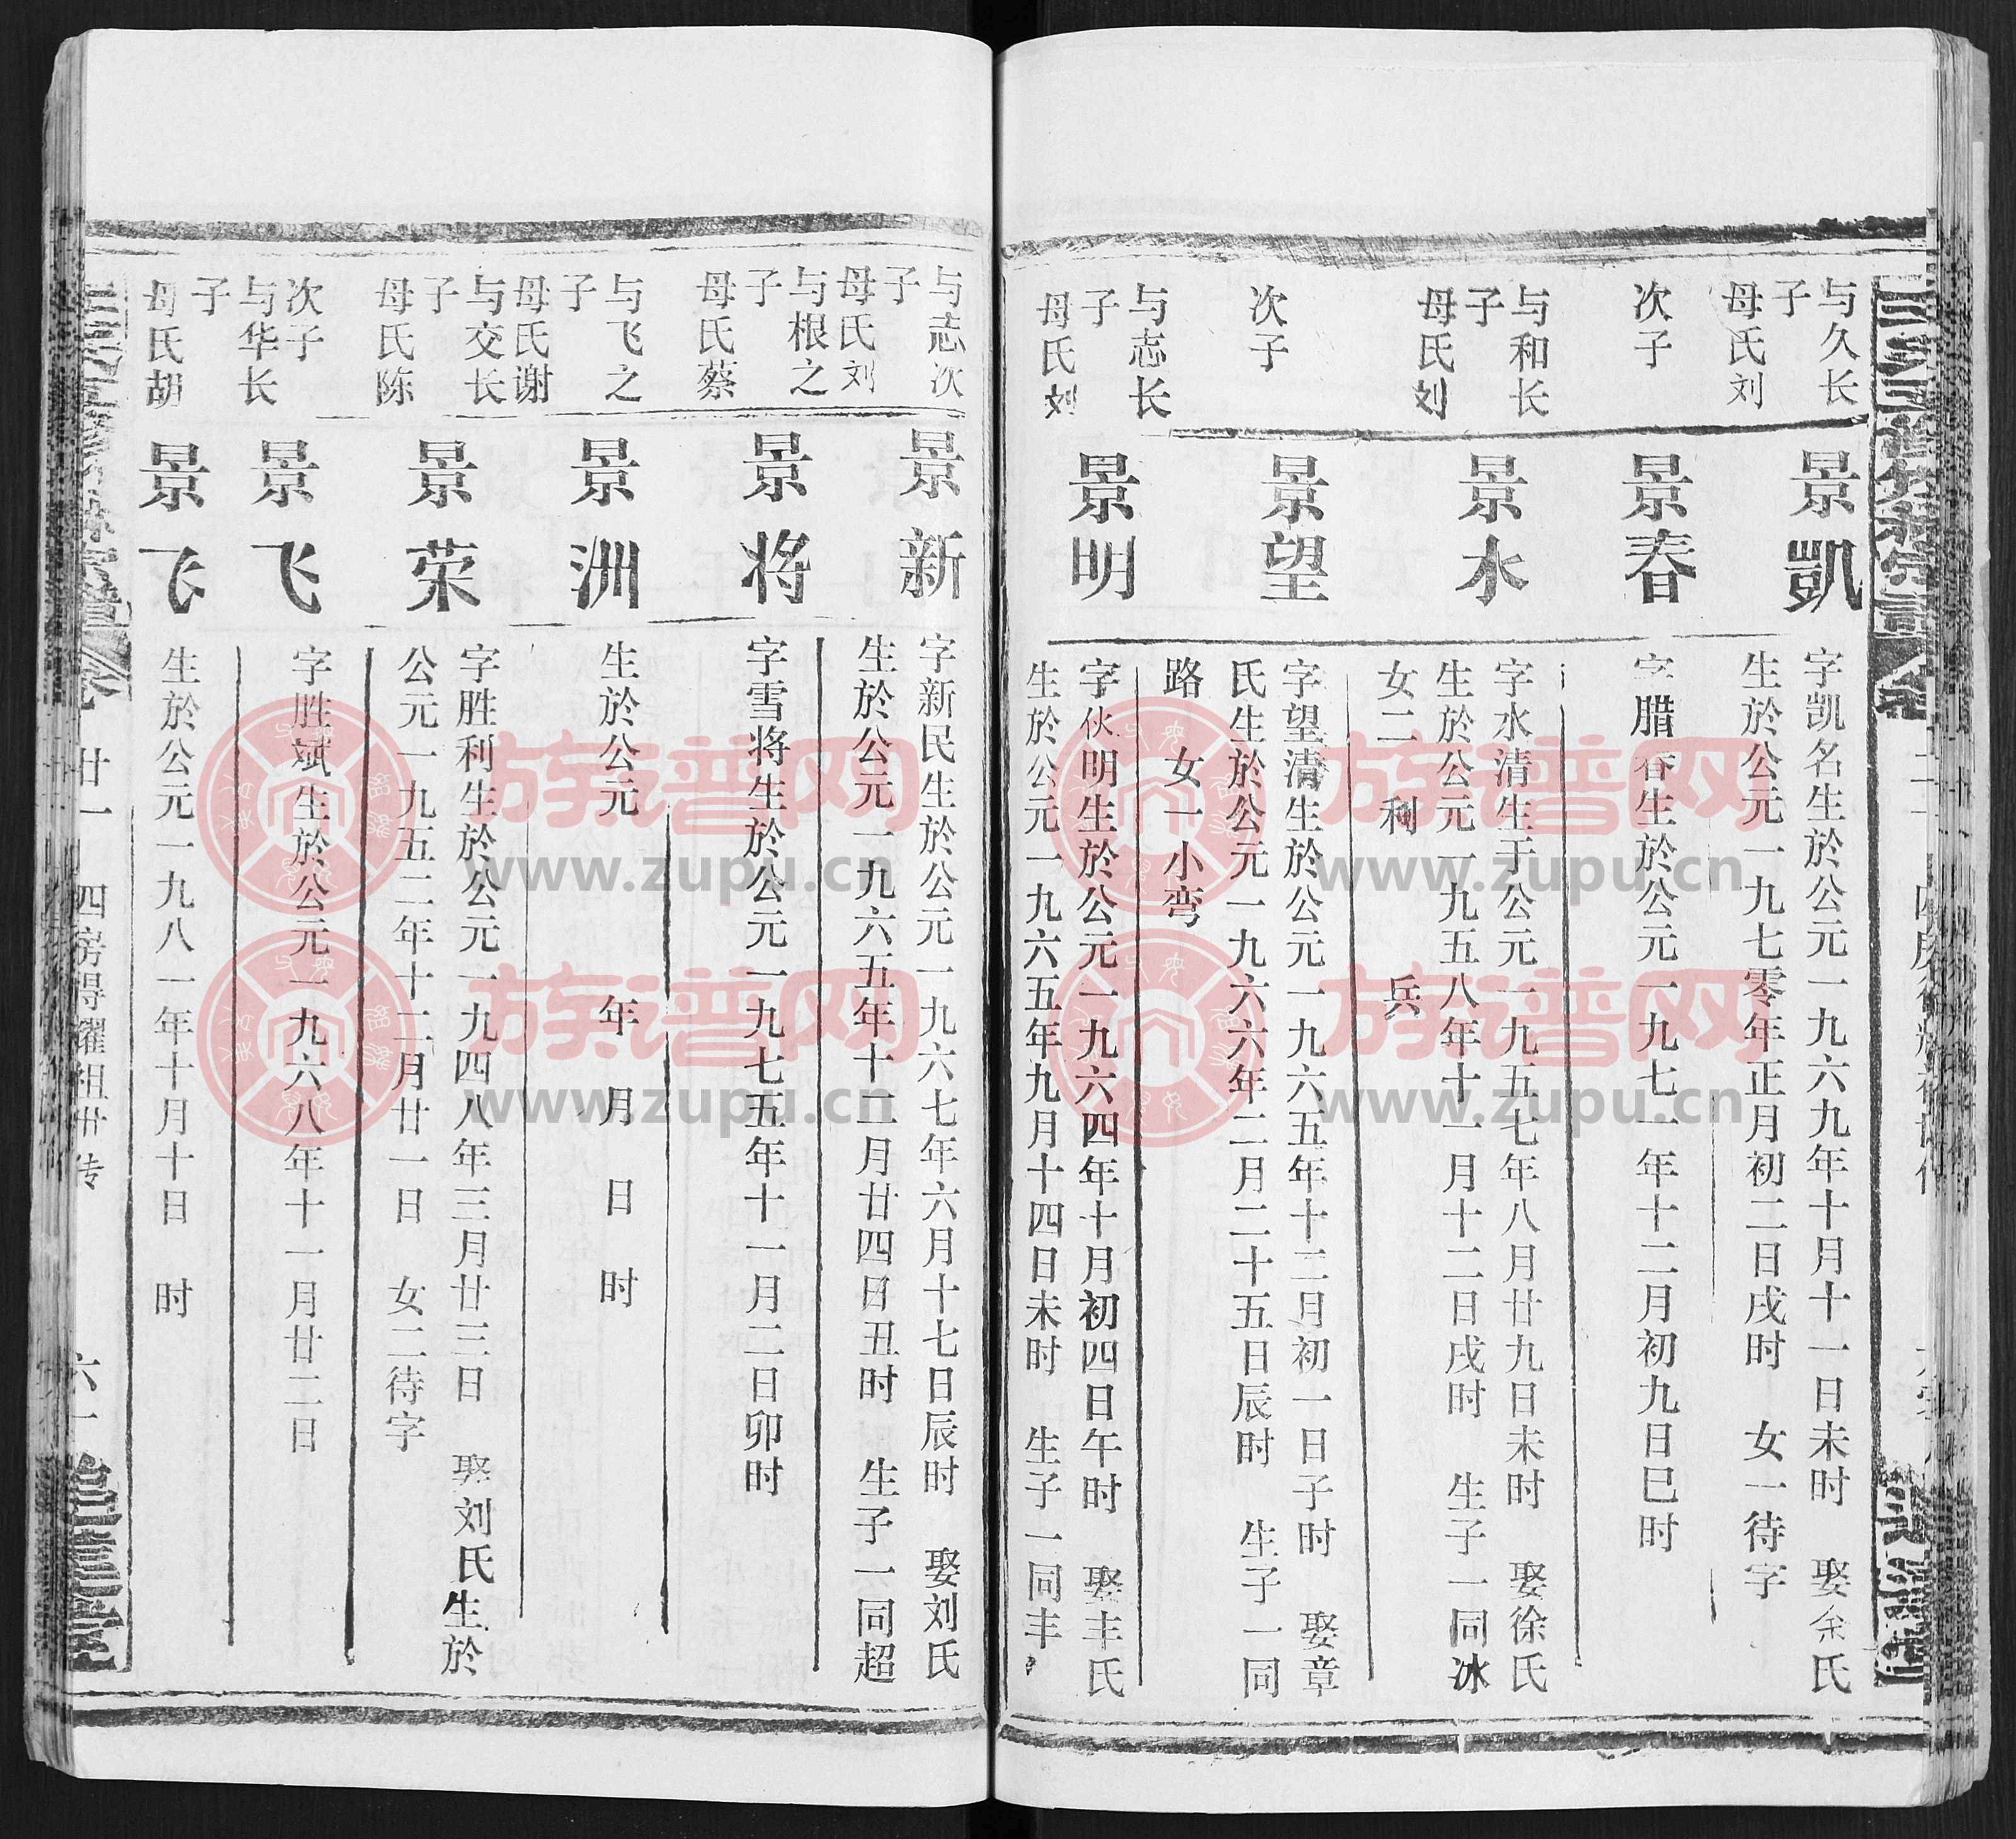 与久长
子
母氏刘
景凯
字凯名生於公元一九六九年十月十一日未时 娶余氏
生於公元一九七零年正月初二日戌时 女一待字
次子
景春
字腊春生於公元一九七一年十二月初九日巳时
与和长
子
母氏刘
景水
字水清生于公元一九五七年八月廿九日未时 娶徐氏
生於公元一九五八年十一月十二日戌时 生子一同冰
女二 利 兵
次子
景望
字望清生於公元一九六五年十二月初一日子时 娶章
氏生於公元一九六六年二月二十五日辰时 生子一同
路 女一小弯
与志长
子
母氏刘
景明
字伙明生於公元一九六四年十月初四日午时 娶丰氏
生於公元一九六五年九月十四日未时 生子一同丰
与志次
子
母氏刘
景新
字新民生於公元一九六七年六月十七日辰时 娶刘氏
生於公元一九六五年十二月廿四日丑时 生子一同超
与根之
子
母氏蔡
景将
字雪将生於公元一九七五年十一月二日卯时
与飞之
子
母氏谢
景洲
生於公元 年 月 日 时
与交长
子
母氏陈
景荣
字胜利生於公元一九四八年三月廿三日 娶刘氏生於
公元一九五二年十二月廿一日 女二待字
次子
景飞
字胜斌生於公元一九六八年十一月廿二日
与华长
子
母氏胡
景飞
生於公元一九八一年十月十日 时
廿一 四房得耀祖世传 六一
族谱网
www.zupu.cn
族谱网
www.zupu.cn
族谱网
www.zupu.cn
族谱网
www.zupu.cn